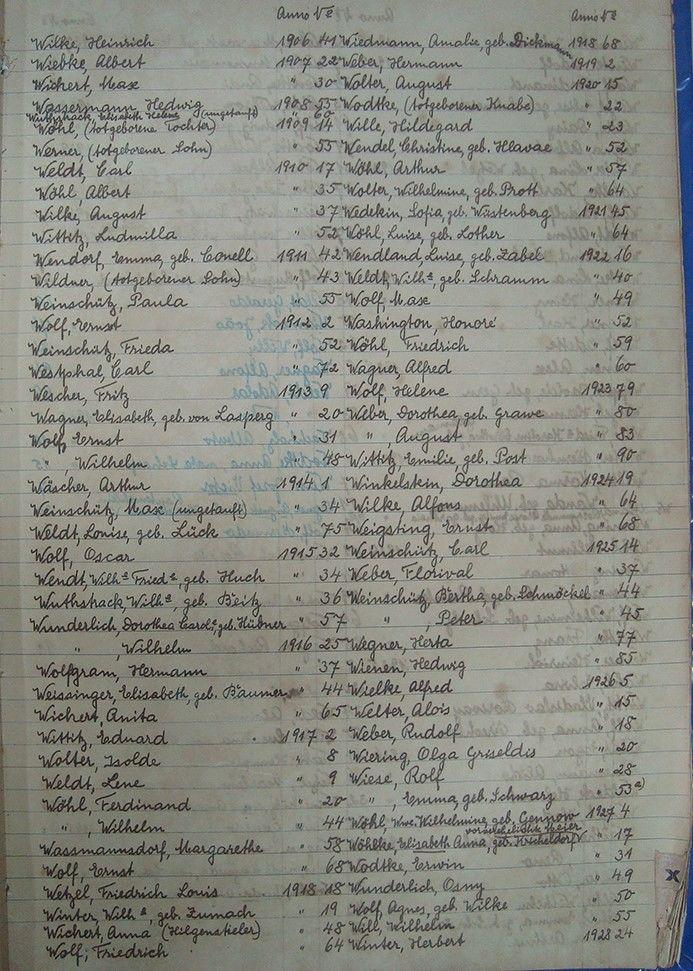 Anno Nº
Wilke, Heinrich 1906 41
Wiebke, Albert 1907 22
Wichert, Max " 30
Wassermann, Hedwig 1908 55
Wuthstrack, Elisabeth Helene (ungetauft) " 60
Wöhl, (totgeborene Tochter) 1909 14
Werner, (totgeborener Sohn) " 55
Weldt, Carl 1910 17
Wöhl, Albert " 35
Wilke, August " 37
Wittitz, Ludmilla " 52
Wendorf, Emma, geb. Conell 1911 42
Wildner, (totgeborener Sohn) " 43
Weinschütz, Paula " 55
Wolf, Ernst 1912 2
Weinschütz, Frieda " 52
Westphal, Carl " 72
Wescher, Fritz 1913 9
Wagner, Elisabeth, geb. von Lasperg " 20
Wolf, Ernst " 31
" , Wilhelm " 48
Wäscher, Arthur 1914 1
Weinschütz, Max (ungetauft) " 34
Weldt, Louise, geb. Lück " 75
Wolf, Oscar 1915 32
Wendt, Wilhᵉ Friedᵉ, geb. Huch " 34
Wuthstrack, Wilhᵉ, geb. Beitz " 36
Wunderlich, Dorothea Carol., geb. Hübner " 57
" , Wilhelm 1916 25
Wolfgram, Hermann " 37
Weissinger, Elisabeth, geb. Bäumer " 44
Wichert, Anita " 65
Wittitz, Eduard 1917 2
Wolter, Isolde " 8
Weldt, Lene " 9
Wöhl, Ferdinand " 20
" , Wilhelm " 44
Wassmannsdorf, Margarethe " 58
Wolf, Ernst " 68
Wetzel, Friedrich Louis 1918 18
Winter, Wilhᵉ, geb. Zumach " 19
Wichert, Anna (Hilgenstieler) " 48
Wolf, Friedrich " 64
Anno Nº
Wiedmann, Amalie, geb. Dickmann 1918 68
Weber, Hermann 1919 2
Wolter, August 1920 15
Wodtke, (totgeborener Knabe) " 22
Wille, Hildegard " 23
Wendel, Christine, geb. Hlavac " 52
Wöhl, Arthur " 57
Wolter, Wilhelmine, geb. Prott " 64
Wedekin, Sofia, geb. Wüstenberg 1921 45
Wöhl, Luise, geb. Lother " 64
Wendland, Luise, geb. Zabel 1922 16
Weldt, Wilhᵉ, geb. Schramm " 40
Wolf, Max " 49
Washington, Honoré " 52
Wöhl, Friedrich " 59
Wagner, Alfred " 60
Wolf, Helene 1923 79
Weber, Dorothea, geb. Grawe " 80
" , August " 83
Wittitz, Emilie, geb. Post " 90
Winkelstein, Dorothea 1924 19
Wilke, Alfons " 64
Weigsting, Ernst " 68
Weinschütz, Carl 1925 14
Weber, Florival " 37
Weinschütz, Bertha, geb. Schmöckel " 44
" , Peter " 45
Wegner, Herta " 77
Wienen, Hedwig " 85
Wielke, Alfred 1926 5
Welter, Alois " 15
Weber, Rudolf " 18
Wiering, Olga Griseldis " 20
Wiese, Rolf " 28
" , Emma, geb. Schwarz " 53 a)
Wöhl, Wwe. Wilhelmine, geb. Gennrow 1927 4
Wöhlke, Elisabeth Anna, geb. Kircheldorf " 17
Wodtke, Erwin " 31
Wunderlich, Osny " 49
Wolf, Agnes, geb. Wilke " 50
Will, Wilhelm " 55
Winter, Herbert 1928 24
x